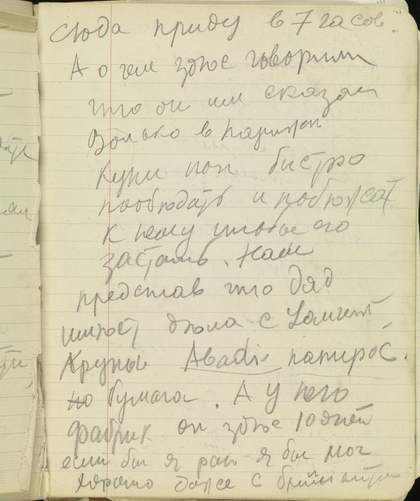 сюда приду в 7 часов.
А о чем здесь говорили
что он им сказал
только в париж
быстро
пообедать и побежать
к нему чтобы его
застать. Нам
представ что дяд
имеет дела с
крупн Abadie папирос.
но бумага. А у него
фабрик он здесь 10 дней
если бы я я бы мог
хорошо даже с